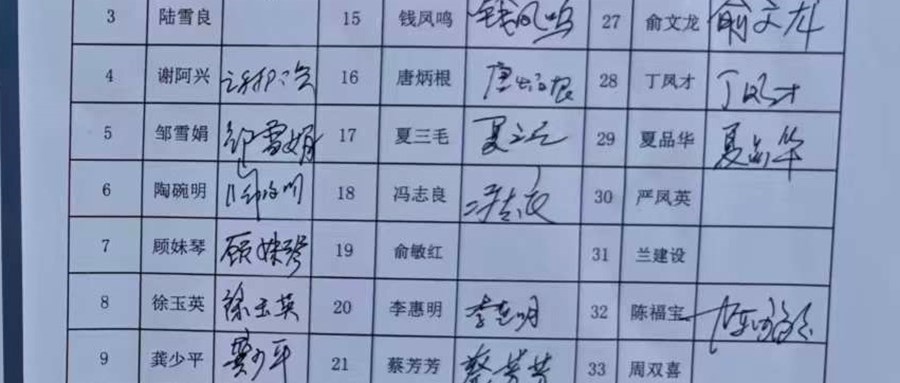 3 陆雪良 15 钱凤鸣 钱凤鸣 27 俞文龙 俞文龙
4 谢阿兴 谢阿兴 16 唐炳根 唐炳根 28 丁凤才 丁凤才
5 邹雪娟 邹雪娟 17 夏三毛 夏三毛 29 夏品华 夏品华
6 陶碗明 陶碗明 18 冯志良 冯志良 30 严凤英
7 顾妹琴 顾妹琴 19 俞敏红 31 兰建设
8 徐玉英 徐玉英 20 李惠明 李惠明 32 陈福宝 陈福宝
9 龚少平 龚少平 21 蔡芳芳 蔡芳芳 33 周双喜